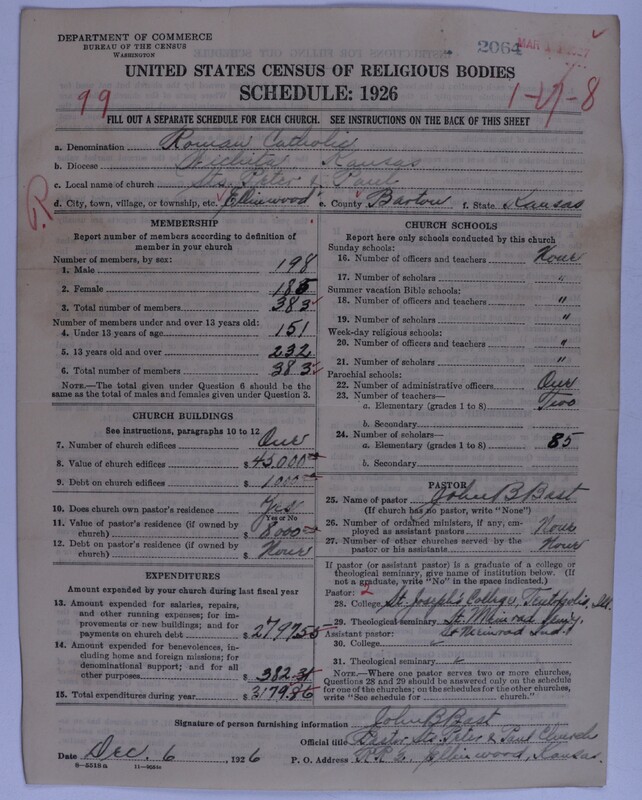 DEPARTMENT OF COMMERCE
BUREAU OF THE CENSUS
WASHINGTON
2064
UNITED STATES CENSUS OF RELIGIOUS BODIES
SCHEDULE: 1926
99
FILL OUT A SEPARATE SCHEDULE FOR EACH CHURCH. SEE INSTRUCTIONS ON THE BACK OF THIS SHEET
a. Denomination Roman Catholic
b. Diocese Wichita Kansas
c. Local name of church Sts. Peter & Paul
d. City, town, village, or township, etc. Ellinwood e. County Barton f. State Kansas
MEMBERSHIP
Report number of members according to definition of
member in your church
Number of members, by sex:
1. Male 198
2. Female 185
3. Total number of members 383
Number of members under and over 13 years old:
4. Under 13 years of age 151
5. 13 years old and over 232
6. Total number of members 383
NOTE.—The total given under Question 6 should be
the same as the total of males and females given under Question 3.
CHURCH BUILDINGS
See instructions, paragraphs 10 to 12
7. Number of church edifices One
8. Value of church edifices $ 45000
9. Debt on church edifices $ 1000
10. Does church own pastor's residence? Yes
Yes or No
11. Value of pastor's residence (if owned by
church) $ 8000
12. Debt on pastor's residence (if owned by
church) $ None
EXPENDITURES
Amount expended by your church during last fiscal year
13. Amount expended for salaries, repairs,
and other running expenses; for im-
provements or new buildings; and for
payments on church debt $ 2797.55
14. Amount expended for benevolences, in-
cluding home and foreign missions; for
denominational support; and for all
other purposes $ 382.31
15. Total expenditures during year $ 3179.86
CHURCH SCHOOLS
Report here only schools conducted by this church
Sunday schools:
16. Number of officers and teachers None
17. Number of scholars "
Summer vacation Bible schools:
18. Number of officers and teachers "
19. Number of scholars "
Week-day religious schools:
20. Number of officers and teachers "
21. Number of scholars "
Parochial schools:
22. Number of administrative officers One
23. Number of teachers—
a. Elementary (grades 1 to 8) Two
b. Secondary
24. Number of scholars—
a. Elementary (grades 1 to 8) 85
b. Secondary
PASTOR
25. Name of pastor John B Bast
(If church has no pastor, write "None")
26. Number of ordained ministers, if any, em-
ployed as assistant pastors None
27. Number of other churches served by the
pastor or his assistants None
If pastor (or assistant pastor) is a graduate of a college or
theological seminary, give name of institution below. (If
not a graduate, write "No" in the space indicated.)
Pastor: 2
28. College St. Joseph's College, Teutopolis, Ill.
29. Theological seminary St. Meinrad
St Meinrad Ind.
Assistant pastor:
30. College
31. Theological seminary
NOTE.—Where one pastor serves two or more churches,
Questions 28 and 29 should be answered only on the schedule
for one of the churches; on the schedules for the other churches,
write "See schedule for church."
Signature of person furnishing information John B Bast
Official title Pastor Sts. Peter & Paul Church
Date Dec. 6, 1926 P. O. Address Ellinwood, Kansas.